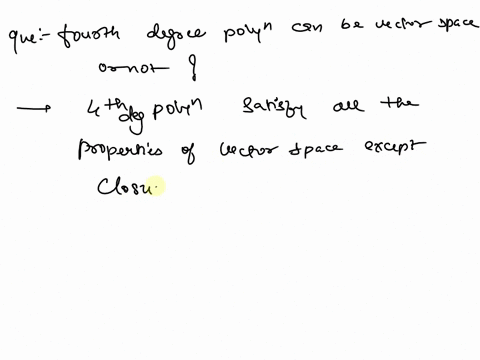 que:- fourth degree polyn can be vector space
or not ?
→ 4th deg polyn satisfy all the
properties of vector space except
Closu